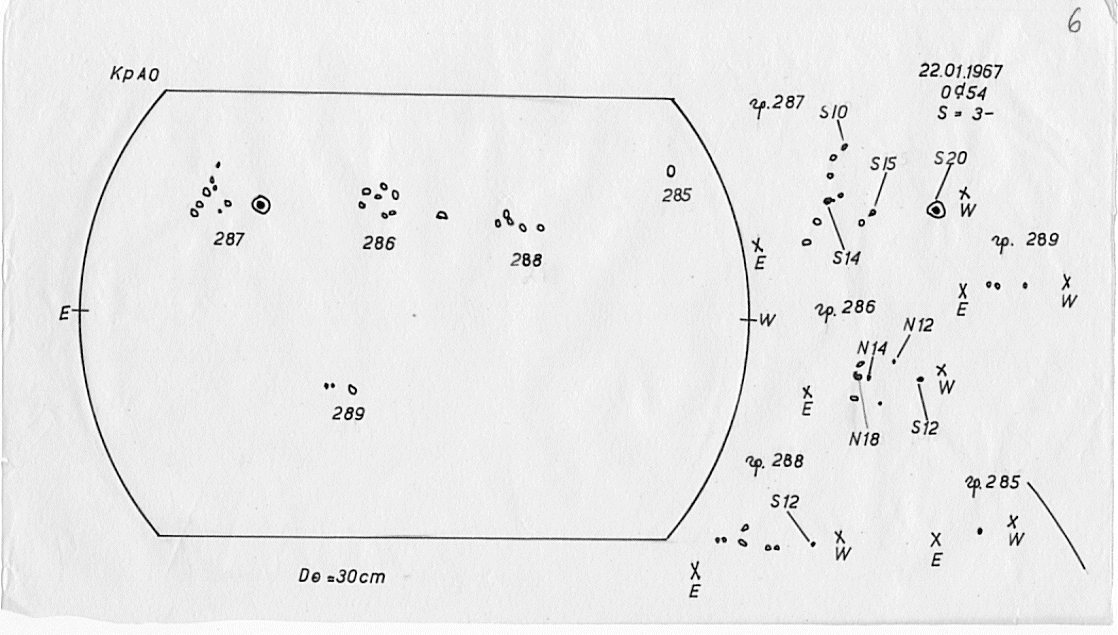 6
КрАО
22.01.1967
0d54
S = 3-
гр. 287
S10
S15
S20
X
W
S14
X
E
285
287
286
288
гр. 289
X
E
X
W
E
W
гр. 286
N12
N14
X
W
X
E
N18
S12
289
гр. 288
S12
X
W
X
E
гр. 285
X
W
X
E
D⊙ = 30cm